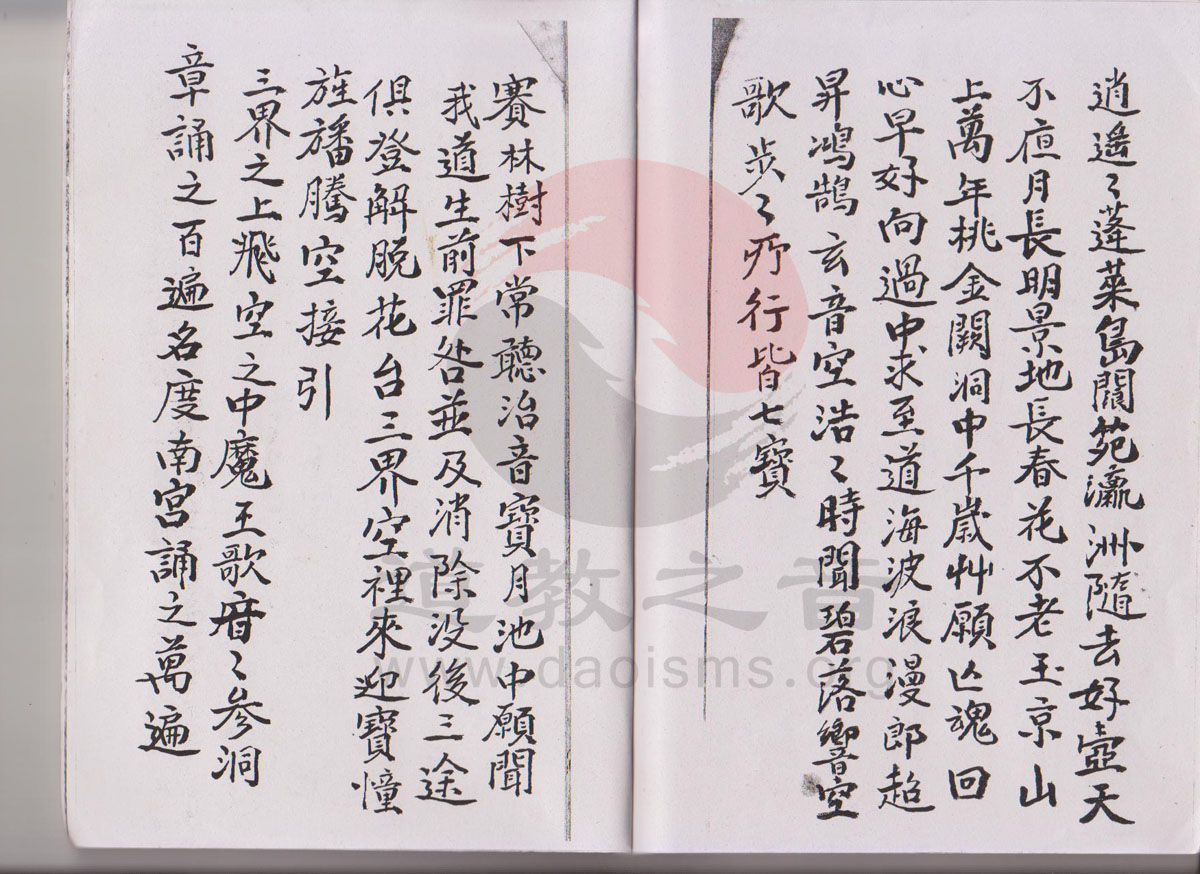 逍遥〻蓬莱島閬苑瀛洲隨去好壺天
不夜月長明景地長春花不老玉京山
上萬年桃金闕洞中千歲艸願亡魂回
心早好向過中求至道海波浪漫郎超
昇鴻鵠玄音空浩〻時聞碧落響空
歌步〻所行皆七寳
賽林樹下常聽治音寳月池中願聞
我道生前罪咎並及消除没後三途
俱登解脱花台三界空裡來迎寳憧
旌旛騰空接引
三界之上飛空之中魔王歌音〻參洞
章誦之百遍名度南宮誦之萬遍
道教之音
www.daoisms.org